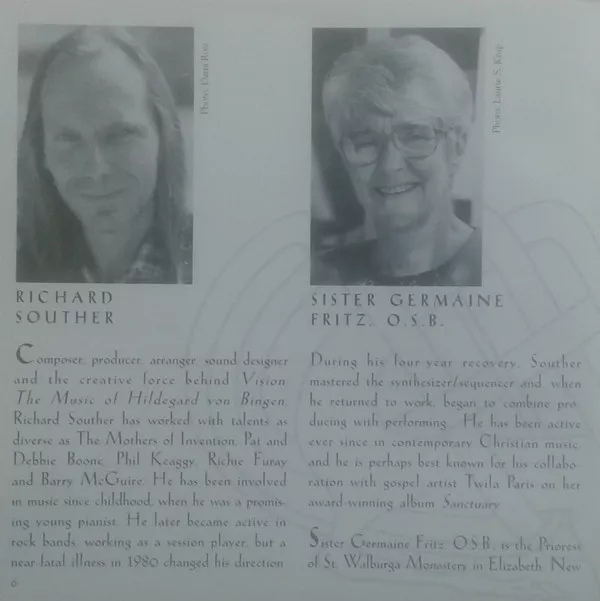 Photo: Dana Ross
Photo: Laurie S. Krip
RICHARD
SOUTHER
SISTER GERMAINE
FRITZ, O.S.B.
Composer, producer, arranger, sound designer
and the creative force behind Vision
The Music of Hildegard von Bingen,
Richard Souther has worked with talents as
diverse as The Mothers of Invention, Pat and
Debbie Boone, Phil Keaggy, Richie Furay
and Barry McGuire. He has been involved
in music since childhood, when he was a promis-
ing young pianist. He later became active in
rock bands, working as a session player, but a
near-fatal illness in 1980 changed his direction.
During his four-year recovery, Souther
mastered the synthesizer/sequencer and, when
he returned to work, began to combine pro-
ducing with performing. He has been active
ever since in contemporary Christian music,
and he is perhaps best known for his collabo-
ration with gospel artist Twila Paris on her
award-winning album Sanctuary.
Sister Germaine Fritz, O.S.B., is the Prioress
of St. Walburga Monastery in Elizabeth, New
6